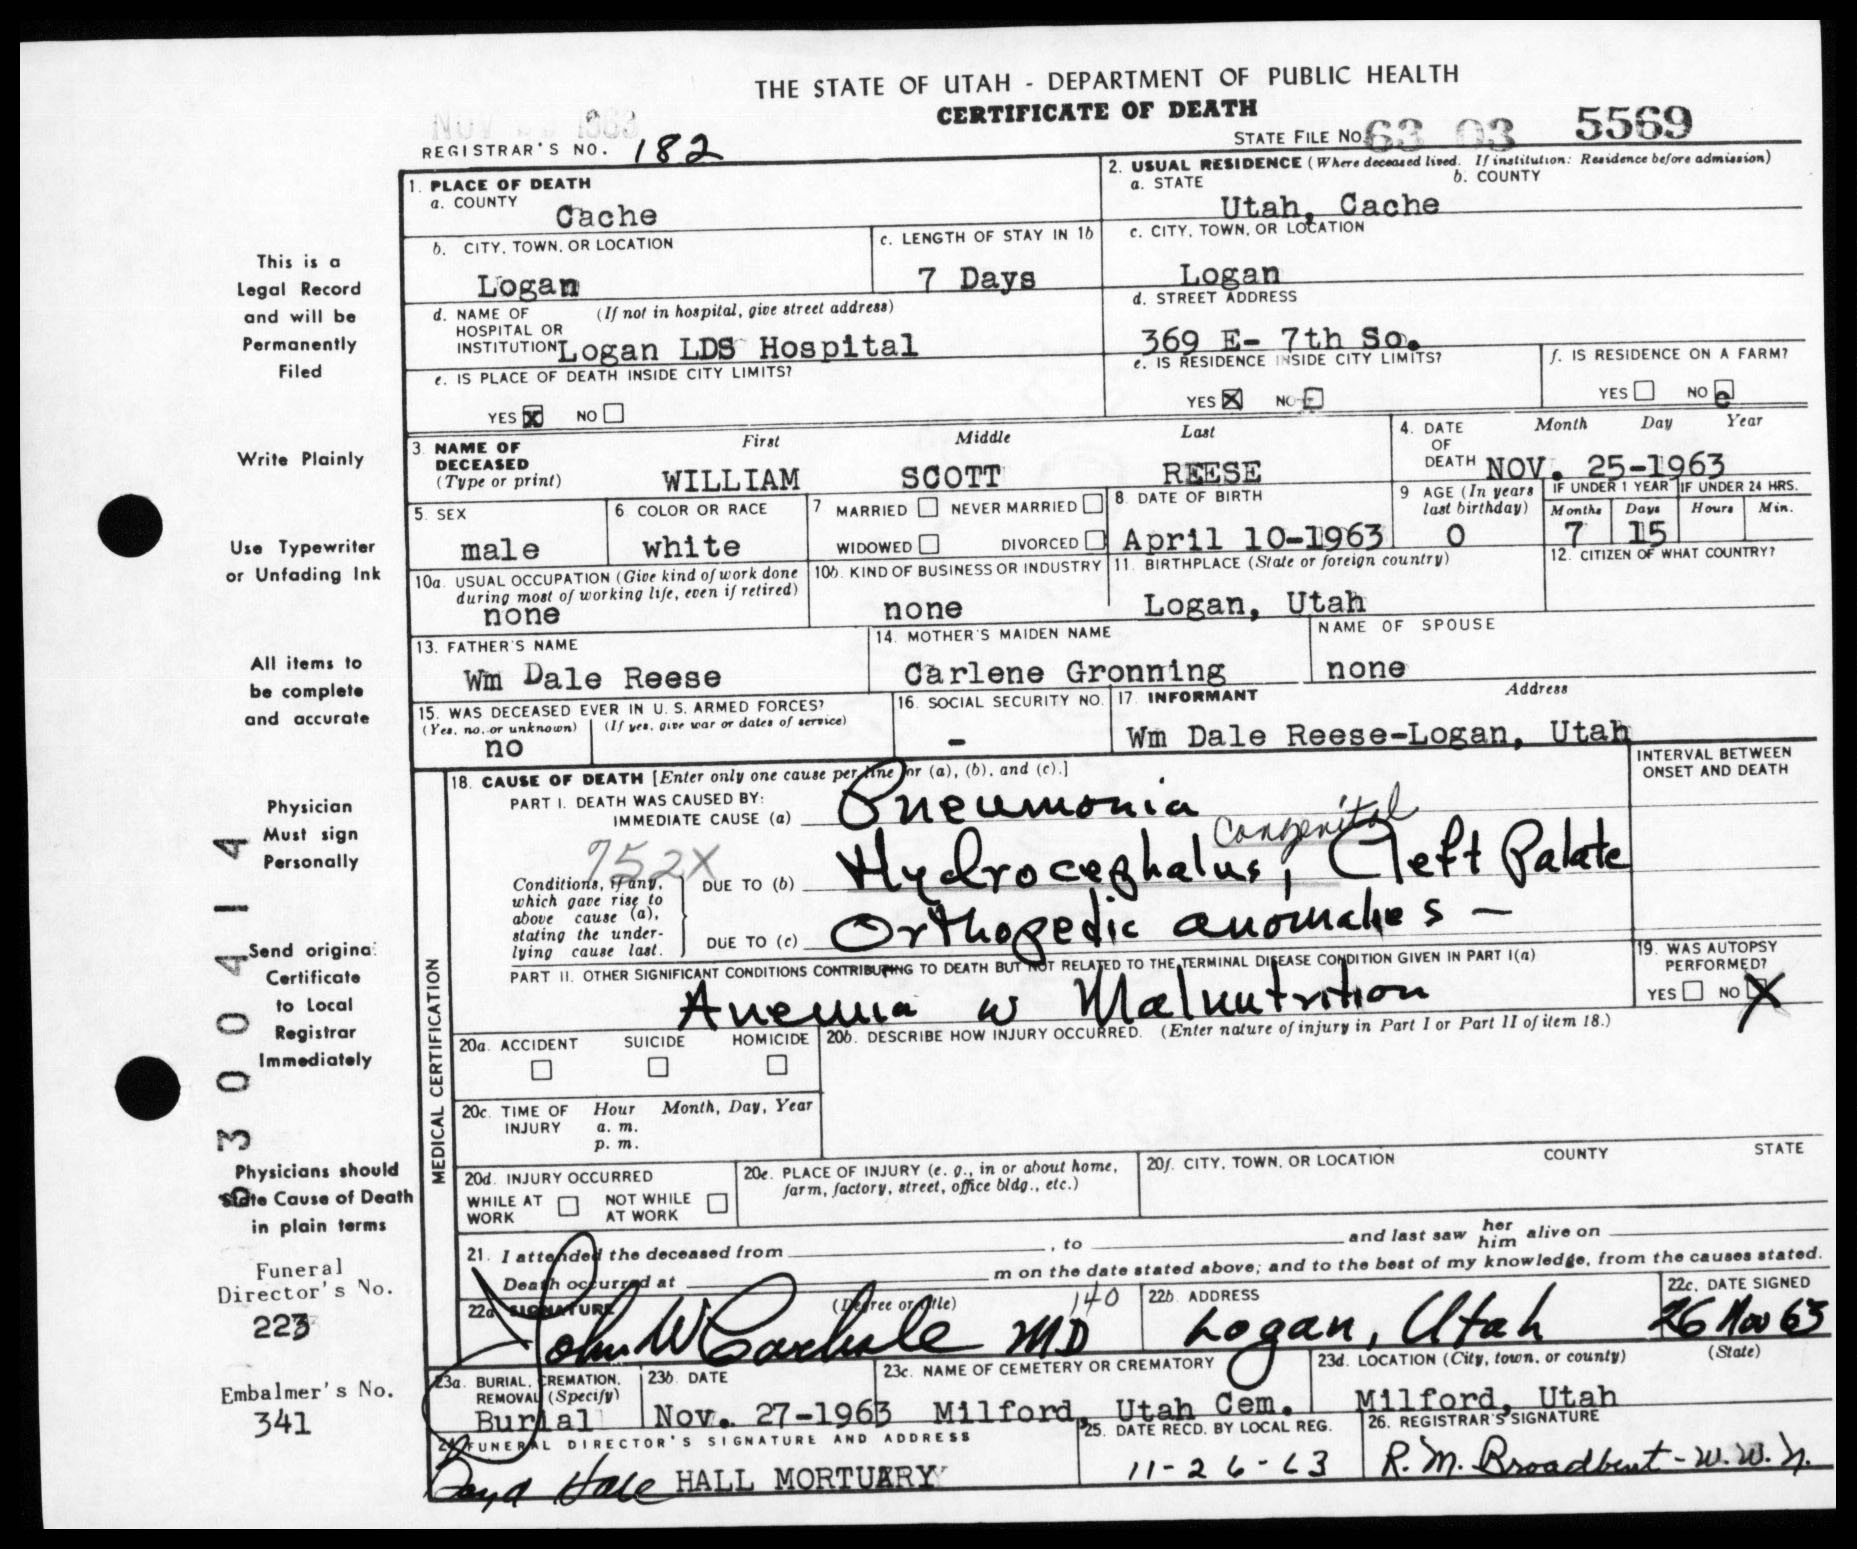 THE STATE OF UTAH - DEPARTMENT OF PUBLIC HEALTH
CERTIFICATE OF DEATH
NOV 1963
REGISTRAR'S NO. 182
STATE FILE NO. 63 03 5569
This is a
Legal Record
and will be
Permanently
Filed
Write Plainly
Use Typewriter
or Unfading Ink
All items to
be complete
and accurate
Physician
Must sign
Personally
Send original
Certificate
to Local
Registrar
Immediately
Physicians should
State Cause of Death
in plain terms
Funeral
Director's No.
223
Embalmer's No.
341
1. PLACE OF DEATH
a. COUNTY
Cache
2. USUAL RESIDENCE (Where deceased lived. If institution: Residence before admission)
a. STATE b. COUNTY
Utah, Cache
b. CITY, TOWN, OR LOCATION
Logan
c. LENGTH OF STAY IN 1b
7 Days
c. CITY, TOWN, OR LOCATION
Logan
d. NAME OF (If not in hospital, give street address)
HOSPITAL OR
INSTITUTION Logan LDS Hospital
d. STREET ADDRESS
369 E- 7th So.
e. IS PLACE OF DEATH INSIDE CITY LIMITS?
YES X NO
e. IS RESIDENCE INSIDE CITY LIMITS?
YES X NO
f. IS RESIDENCE ON A FARM?
YES NO
3. NAME OF DECEASED (Type or print)
First Middle Last
WILLIAM SCOTT REESE
4. DATE OF DEATH
Month Day Year
NOV. 25-1963
5. SEX
male
6 COLOR OR RACE
white
7 MARRIED NEVER MARRIED
WIDOWED DIVORCED
8. DATE OF BIRTH
April 10-1963
9 AGE (In years last birthday)
0
IF UNDER 1 YEAR IF UNDER 24 HRS.
Months Days Hours Min.
7 15
10a. USUAL OCCUPATION (Give kind of work done
during most of working life, even if retired)
none
10b. KIND OF BUSINESS OR INDUSTRY
none
11. BIRTHPLACE (State or foreign country)
Logan, Utah
12. CITIZEN OF WHAT COUNTRY?
13. FATHER'S NAME
Wm Dale Reese
14. MOTHER'S MAIDEN NAME
Carlene Gronning
NAME OF SPOUSE
none
15. WAS DECEASED EVER IN U. S. ARMED FORCES?
(Yes, no, or unknown) (If yes, give war or dates of service)
no
16. SOCIAL SECURITY NO.
-
17. INFORMANT Address
Wm Dale Reese-Logan, Utah
MEDICAL CERTIFICATION
18. CAUSE OF DEATH [Enter only one cause per line for (a), (b), and (c).]
INTERVAL BETWEEN
ONSET AND DEATH
PART I. DEATH WAS CAUSED BY:
IMMEDIATE CAUSE (a) Pneumonia
752X
congenital
Conditions, if any,
which gave rise to
above cause (a),
stating the under-
lying cause last.
DUE TO (b) Hydrocephalus, Cleft Palate
DUE TO (c) Orthopedic anomalies -
PART II. OTHER SIGNIFICANT CONDITIONS CONTRIBUTING TO DEATH BUT NOT RELATED TO THE TERMINAL DISEASE CONDITION GIVEN IN PART I(a)
Anemia w Malnutrition
19. WAS AUTOPSY
PERFORMED?
YES NO X
20a. ACCIDENT SUICIDE HOMICIDE
20b. DESCRIBE HOW INJURY OCCURRED. (Enter nature of injury in Part I or Part II of item 18.)
20c. TIME OF INJURY Hour Month, Day, Year
a. m.
p. m.
20d. INJURY OCCURRED
WHILE AT WORK NOT WHILE AT WORK
20e. PLACE OF INJURY (e. g., in or about home,
farm, factory, street, office bldg., etc.)
20f. CITY, TOWN, OR LOCATION COUNTY STATE
21. I attended the deceased from , to and last saw her him alive on
Death occurred at m on the date stated above; and to the best of my knowledge, from the causes stated.
22a. SIGNATURE (Degree or title) 140
John W Carlisle MD
22b. ADDRESS
Logan, Utah
22c. DATE SIGNED
26 Nov 63
23a. BURIAL, CREMATION,
REMOVAL (Specify)
Burial
23b DATE
Nov. 27-1963
23c. NAME OF CEMETERY OR CREMATORY
Milford, Utah Cem.
23d. LOCATION (City, town, or county) (State)
Milford, Utah
24. FUNERAL DIRECTOR'S SIGNATURE AND ADDRESS
HALL MORTUARY
25. DATE RECD. BY LOCAL REG.
11-26-63
26. REGISTRAR'S SIGNATURE
R. M. Broadbent - W. W. N.